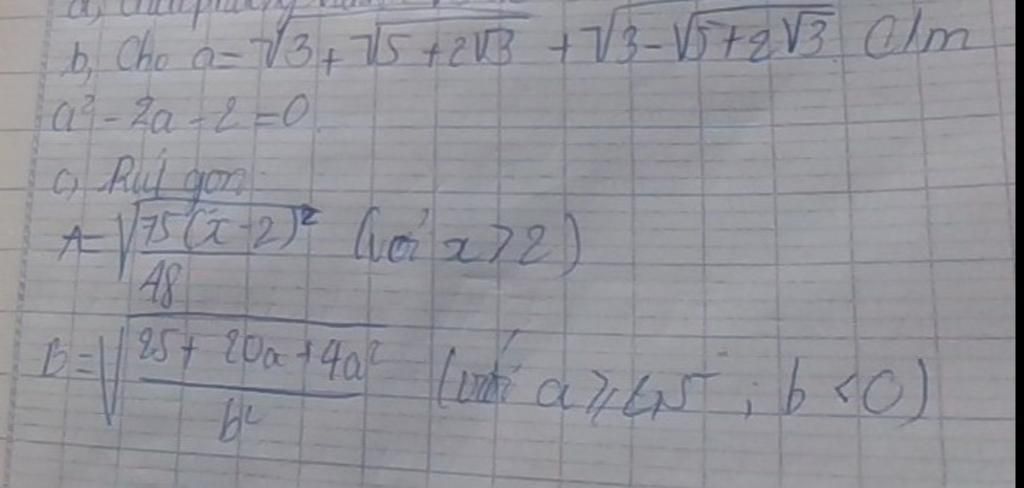 b, Cho a = √(3 + √(5 + 2√3)) + √(3 - √(5 + 2√3)) C/m
a² - 2a - 2 = 0
c, Rút gọn
A = √(75(x - 2)²/48) (với x > 2)
B = √((25 + 20a + 4a²)/b²) (với a ≥ ; b < 0)